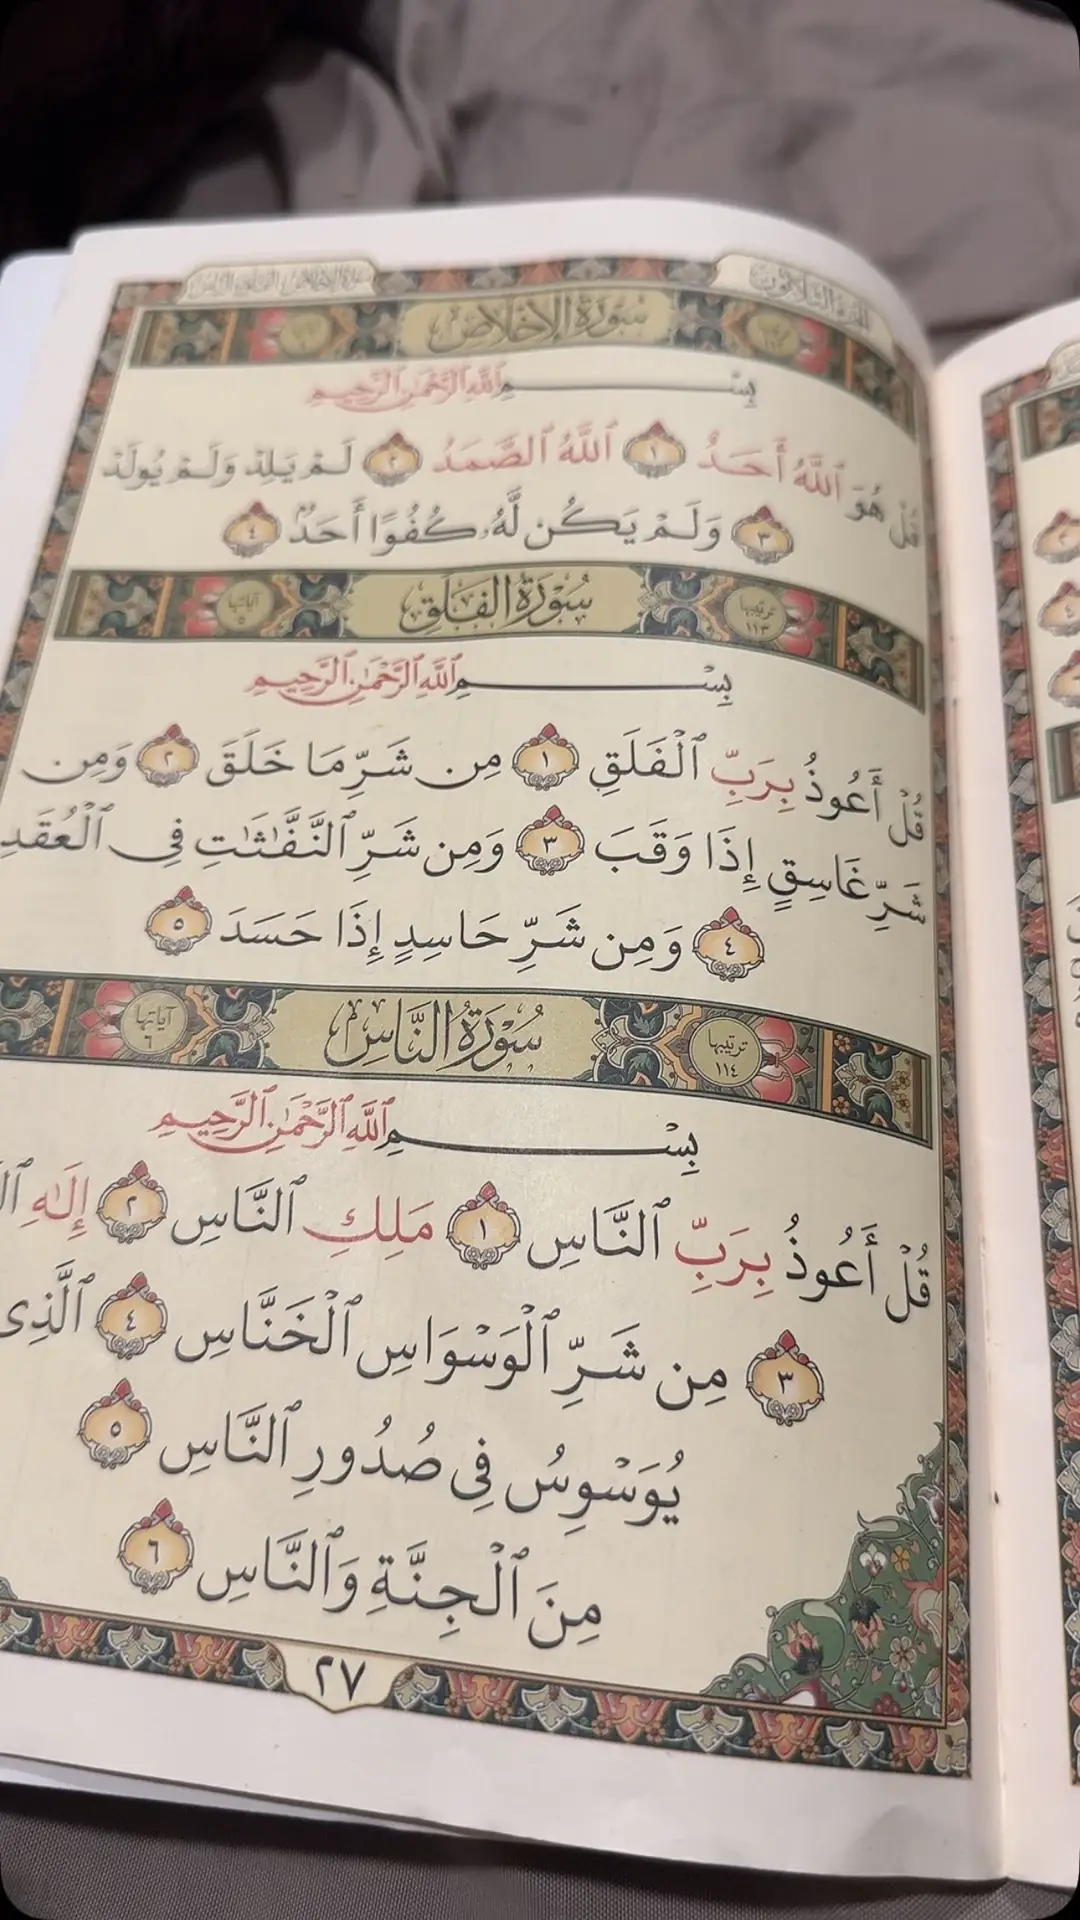 الجزء الثلاثون
سورة الإخلاص
سُورَةُ الإِخْلَاصِ
بِسْمِ ٱللَّهِ ٱلرَّحْمَٰنِ ٱلرَّحِيمِ
قُلْ هُوَ ٱللَّهُ أَحَدٌ ١ ٱللَّهُ ٱلصَّمَدُ ٢ لَمْ يَلِدْ وَلَمْ يُولَدْ
٣ وَلَمْ يَكُن لَّهُۥ كُفُوًا أَحَدٌۢ ٤
ترتيبها ١١٣ سُورَةُ الفَلَقِ آياتها ٥
بِسْمِ ٱللَّهِ ٱلرَّحْمَٰنِ ٱلرَّحِيمِ
قُلْ أَعُوذُ بِرَبِّ ٱلْفَلَقِ ١ مِن شَرِّ مَا خَلَقَ ٢ وَمِن
شَرِّ غَاسِقٍ إِذَا وَقَبَ ٣ وَمِن شَرِّ ٱلنَّفَّٰثَٰتِ فِى ٱلْعُقَدِ
٤ وَمِن شَرِّ حَاسِدٍ إِذَا حَسَدَ ٥
ترتيبها ١١٤ سُورَةُ النَّاسِ آياتها ٦
بِسْمِ ٱللَّهِ ٱلرَّحْمَٰنِ ٱلرَّحِيمِ
قُلْ أَعُوذُ بِرَبِّ ٱلنَّاسِ ١ مَلِكِ ٱلنَّاسِ ٢ إِلَٰهِ
٣ مِن شَرِّ ٱلْوَسْوَاسِ ٱلْخَنَّاسِ ٤ ٱلَّذِى
يُوَسْوِسُ فِى صُدُورِ ٱلنَّاسِ ٥
مِنَ ٱلْجِنَّةِ وَٱلنَّاسِ ٦
٢٧